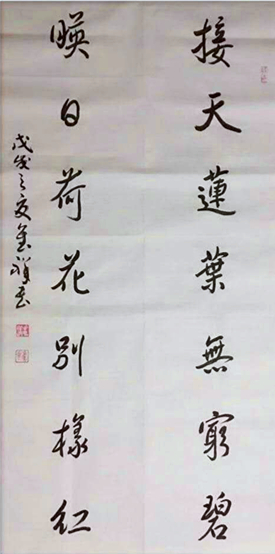 接天蓮葉無窮碧
暎日荷花別樣紅
戊戌之夏